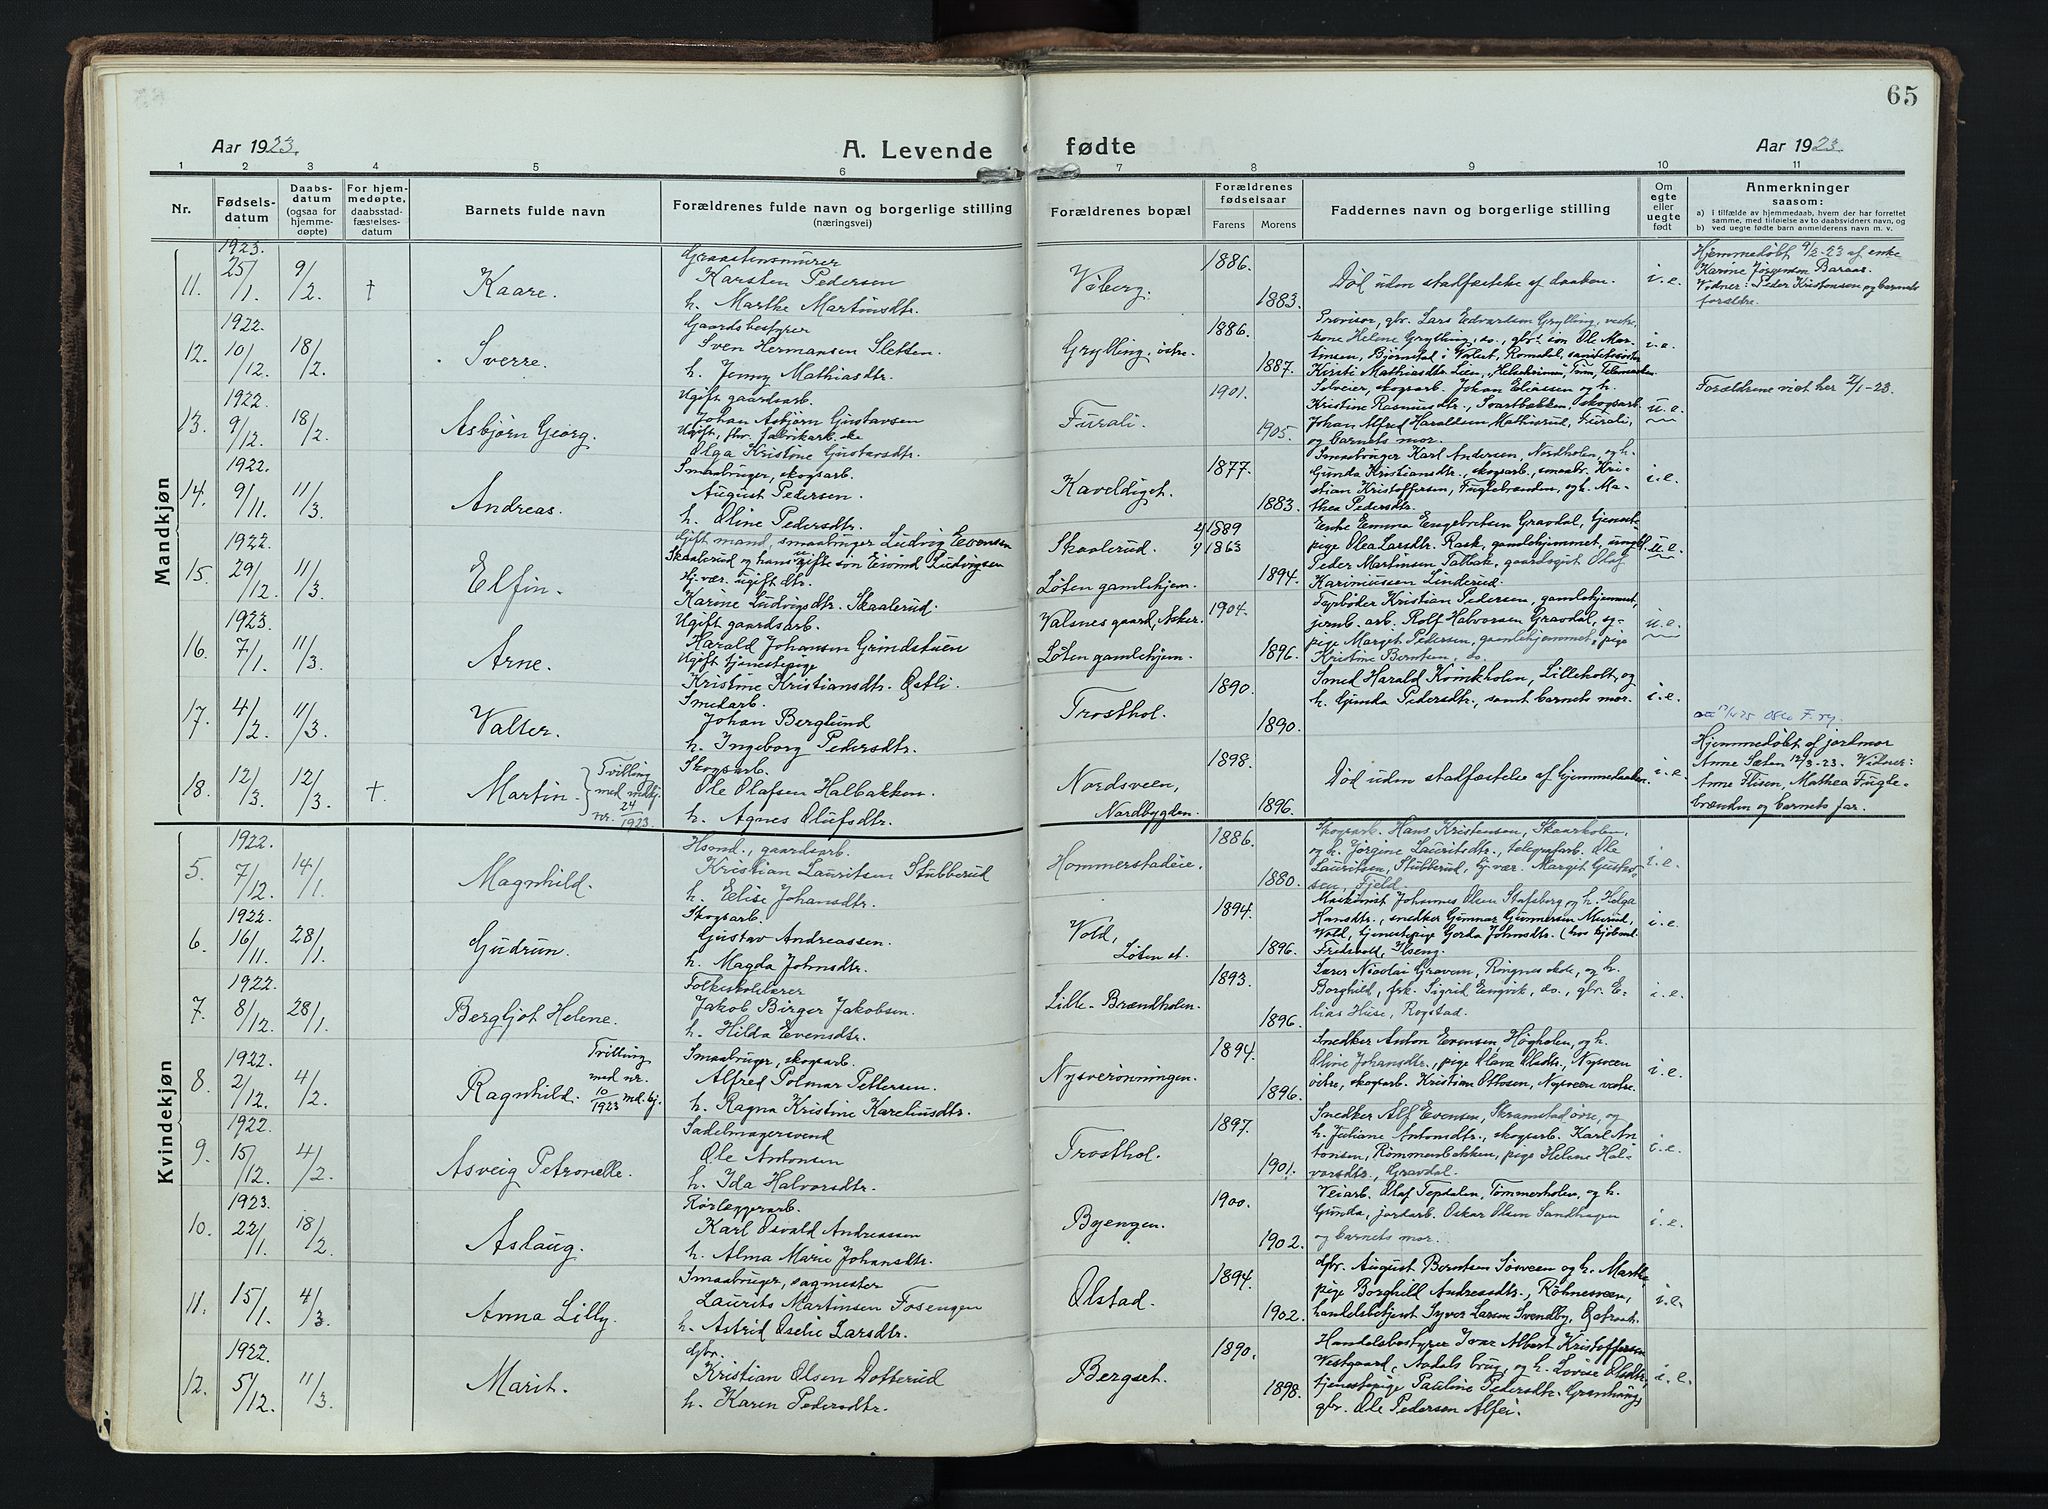 65
Aar 1923.
A. Levende fødte
Aar 1923.
1 2 3 4 5 6 7 8 9 10 11
Nr.
Fødsels-
datum
Daabs-
datum
(ogsaa for
hjemme-
døpte)
For hjem-
medøpte,
daabsstad-
fæstelses-
datum
Barnets fulde navn
Forældrenes fulde navn og borgerlige stilling
(næringsvei)
Forældrenes bopæl
Forældrenes
fødselsaar
Farens Morens
Faddernes navn og borgerlige stilling
Om
egte
eller
uegte
født
Anmerkninger
saasom:
a) i tilfælde av hjemmedaab, hvem der har forrettet
samme, med tilføielse av to daabsvidners navn, og
b) ved uegte fødte barn anmelderens navn m. v.
Mandkjøn
11. 1923. 25/1. 9/2. † Kaare.
Graastensmurer
Karsten Pedersen
h. Marthe Martinsdtr.
Viberg. 1886. 1883.
Død uden stadfæstelse af daaben. i.e.
Hjemmedøbt 9/2-23 af enke
Karine Jørgensen Baraas.
Vidner: Peder Kristensen og barnets
forældre.
12. 1922. 10/12. 18/2. Sverre.
Gaardsbestyrer
Sven Hermansen Sletten.
h. Jenny Mathiasdtr.
Grylling, østre. 1886. 1887.
Provisor, gbr. Lars Edvartsen Grylling,
kone Helene Grylling, do., gbrs søn Ole Mar-
tinsen, Bjørnstad i Valset, Romedal,
Kersti Mathiasdtr. Lien, i.e.
13. 1922. 9/12. 18/2. Asbjørn Georg.
Ugift gaardsarb.
Johan Asbjørn Gustavsen
Ugift, fhv. fabrikarb.ske
Olga Kristine Gustavsdtr.
Furali. 1901. 1905.
Selveier, skogsarb. Johan Eliassen og h.
Kristine Rasmusdtr., Svartbækken, skogsarb.
Johan Alfred Haraldsen Mathisrud, Furali,
og barnets mor. u.e.
Forældrene viet her 7/1-23.
14. 1922. 9/11. 11/3. Andreas.
Smaabruger, skogsarb.
August Pedersen.
h. Oline Pedersdtr.
Kaveldiget. 1877. 1883.
Smaabruger Karl Andersen, Nordholen, og h.
Gunda Kristiansdtr., skogsarb., smaabr. Kri-
stian Kristoffersen, Fuglebrænden, og h. Ma-
thea Pedersdtr. i.e.
15. 1922. 29/12. 11/3. Elfin.
Gift mand, smaabruger Ludvig Evensen
Skaalerud og hans ugifte søn Eivind Ludvigsen
Hj.vær. ugift dtr.
Karine Ludvigsdtr. Skaalerud.
Skaalerud.
Løten gamlehjem. 1889 1863 1894.
Enke Emma Engebretsen Gravdal, tjeneste-
pige Olea Larsdtr. Rask, gamlehjemmet, ungk.
Peder Martinsen Tatbak, gaardsgut Olaf
Karinussen Linderud. u.e.
16. 1923. 7/1. 11/3. Arne.
Ugift gaardsarb.
Harald Johansen Grindstuen
Ugift tjenestepige
Kristine Kristiansdtr. Østli.
Valsnes gaard, Asker.
Løten gamlehjem. 1904. 1896.
Tøpbøder Kristian Pedersen, gamlehjemmet,
jernb. arb. Rolf Halvorsen Gravdal, sy-
pige Marget Pedersen, gamlehjemmet, pige
Kristine Berntsen, do. u.e.
17. 4/2. 11/3. Valter.
Smedarb.
Johan Berglund
h. Ingeborg Pedersdtr.
Trosthol. 1890. 1890.
Smed Harald Komkholen, Lilleholt, og
h. Gunda Pedersdtr., samt barnets mor. i.e.
18. 12/3. 12/3. † Martin. Tvilling
med mdkj.
nr. 24/1923.
Skogsarb.
Ole Olafsen Halbakken.
h. Agnes Olufsdtr.
Nordsveen,
Nordbygden. 1898. 1896.
Død uden stadfæstelse af hjemmedaaben. i.e.
Hjemmedøbt af jordmor
Anne Sæten 12/3-23. Vidner:
Anne Flisen, Mathea Fugle-
brænden og barnets far.
Kvindekjøn
5. 1922. 7/12. 14/1. Magnhild.
Hsmd., gaardsarb.
Kristian Lauritsen Stubberud
h. Elise Johansdtr.
Hommerstadeie. 1886. 1880.
Skogsarb. Hans Kristensen, Skaarholen,
og h. Jørgine Lauritsdtr., telegrafarb. Ole
Lauritsen, Stubberud, hj.vær. Margit Gustav-
sen, Fjeld. i.e.
6. 1922. 16/11. 28/1. Gudrun.
Skogsarb.
Gustav Andreassen.
h. Magda Johnsdtr.
Vold,
Løten st. 1894. 1896.
Maskinist Johannes Olsen Stafsberg og h. Helga
Hansdtr., snedker Gunnar Gunnersen Murud,
Vold, tjenestepige Gorda Johnsdtr. (hos
Fredvold, Ilseng. i.e.
7. 1922. 8/12. 28/1. Bergljot Helene.
Folkeskolelærer
Jakob Birger Jakobsen.
h. Hilda Evensdtr.
Lille-Brændholen. 1893. 1896.
Lærer Nicolai Gravem, Ringnes skole, og h.
Borghild, frk. Sigrid Engvik, do., gbr. E-
lias Huse, Rogstad. i.e.
8. 1922. 2/12. 4/2. Ragnhild. Tvilling
med nr.
10/1923 md.kj.
Smaabruger, skogsarb.
Alfred Polmar Pettersen.
h. Ragna Kristine Kareliusdtr.
Nysverønningen. 1894. 1896.
Snedker Anton Evensen Høgholen, og h.
Oline Johansdtr., pige Olava Olsdtr., Nysveen
østre, skogsarb. Kristian Ottosen, Nysveen vestre. i.e.
9. 1922. 15/12. 4/2. Asveig Petronelle.
Sadelmagersvend
Ole Antonsen
h. Ida Halvorsdtr.
Trosthol. 1897. 1901.
Snedker Alf Evensen, Skramstad øvre, og
h. Juliane Antonsdtr., skogsarb. Karl An-
tonsen, Rømmenbakken, pige Helene Hal-
vorsdtr., Gravdal. i.e.
10. 1923. 22/1. 18/2. Aslaug.
Rørlæggerarb.
Karl Osvald Andreassen
h. Alma Marie Johansdtr.
Byengen. 1900. 1902.
Veiarb. Olaf Tepdalen, Tømmerholen, og h.
Gunda, jordarb. Oskar Olsen Sandhagen
og barnets mor. i.e.
11. 15/1. 4/3. Anna Lilly.
Smaabruger, sagmester
Laurits Martinsen Fosengen
h. Astrid Oselie Larsdtr.
Ølstad. 1894. 1902.
Gbr. August Berntsen Søsveen og h. Marthe,
pige Borghild Andreasdtr., Røhnesveen,
handelsbetjent Syver Larsen Svendby, i.e.
12. 1922. 5/12. 11/3. Marit.
Gbr.
Kristian Olsen Dotterud
h. Karen Pedersdtr.
Bergset. 1890. 1898.
Handelsbestyrer Ivar Albert Kristoffersen
Vestgaard, Aadals brug, og h. Lovise Olsdtr.,
tjenestepige Pauline Pedersdtr. Granhaug,
gbr. Ole Pedersen Alfei. i.e.